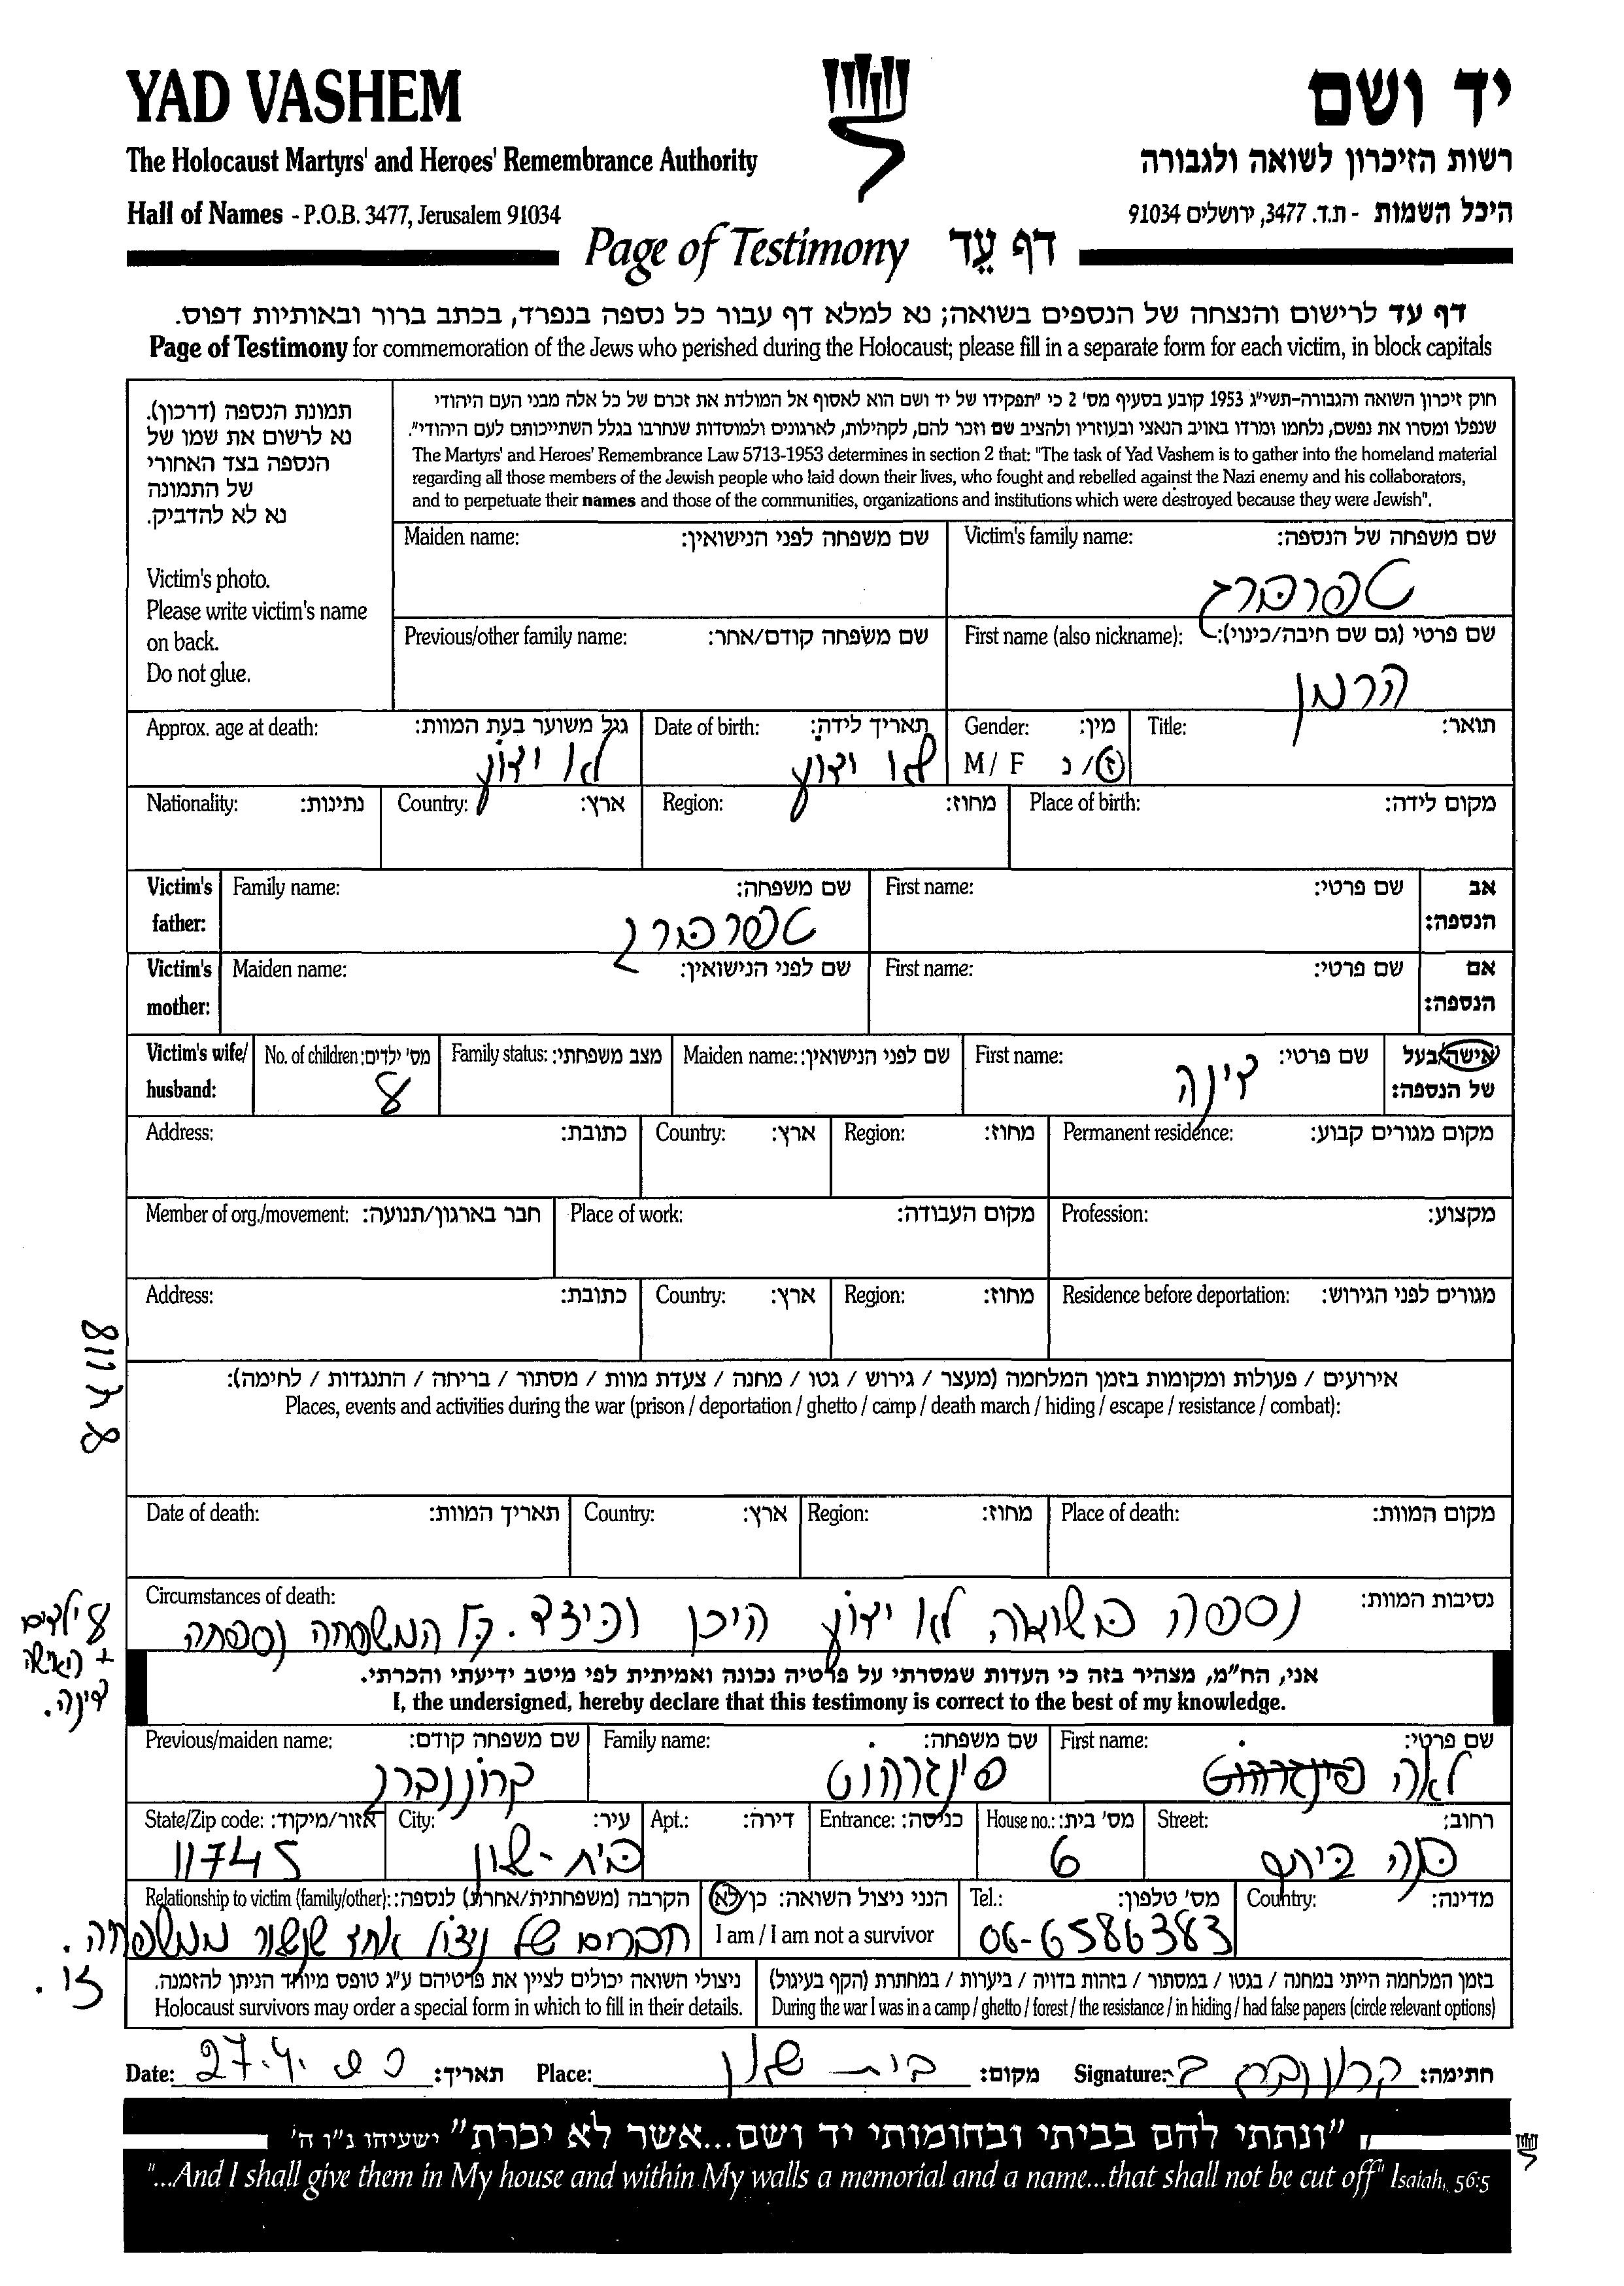 YAD VASHEM
יד ושם
The Holocaust Martyrs' and Heroes' Remembrance Authority
רשות הזיכרון לשואה ולגבורה
Hall of Names - P.O.B. 3477, Jerusalem 91034
היכל השמות - ת.ד. 3477, ירושלים 91034
Page of Testimony דף עֵד
דף עד לרישום והנצחה של הנספים בשואה; נא למלא דף עבור כל נספה בנפרד, בכתב ברור ובאותיות דפוס.
Page of Testimony for commemoration of the Jews who perished during the Holocaust; please fill in a separate form for each victim, in block capitals
תמונת הנספה (דרכון).
נא לרשום את שמו של
הנספה בצד האחורי
של התמונה
נא לא להדביק.
Victim's photo.
Please write victim's name
on back.
Do not glue.
חוק זיכרון השואה והגבורה-תשי"ג 1953 קובע בסעיף מס' 2 כי "תפקידו של יד ושם הוא לאסוף אל המולדת את זכרם של כל אלה מבני העם היהודי
שנפלו ומסרו את נפשם, נלחמו ומרדו באויב הנאצי ובעוזריו ולהציב שם וזכר להם, לקהילות, לארגונים ולמוסדות שנחרבו בגלל השתייכותם לעם היהודי".
The Martyrs' and Heroes' Remembrance Law 5713-1953 determines in section 2 that: "The task of Yad Vashem is to gather into the homeland material
regarding all those members of the Jewish people who laid down their lives, who fought and rebelled against the Nazi enemy and his collaborators,
and to perpetuate their names and those of the communities, organizations and institutions which were destroyed because they were Jewish".
שם משפחה של הנספה: Victim's family name:
שם משפחה לפני הנישואין: Maiden name:
טפרברג
שם פרטי (גם שם חיבה/כינוי): First name (also nickname):
שם משפחה קודם/אחר: Previous/other family name:
הרמן
תואר: Title:
מין: Gender:
תאריך לידה: Date of birth:
גיל משוער בעת המוות: Approx. age at death:
ז/נ M / F
לא ידוע
לא ידוע
מקום לידה: Place of birth:
מחוז: Region:
ארץ: Country:
נתינות: Nationality:
אב הנספה: Victim's father:
שם פרטי: First name:
שם משפחה: Family name:
טפרברג
אם הנספה: Victim's mother:
שם פרטי: First name:
שם לפני הנישואין: Maiden name:
אישה/בעל של הנספה: Victim's wife/husband:
שם פרטי: First name:
שם לפני הנישואין: Maiden name:
מצב משפחתי: Family status:
מס' ילדים: No. of children:
דינה
8
מקום מגורים קבוע: Permanent residence:
מחוז: Region:
ארץ: Country:
כתובת: Address:
מקצוע: Profession:
מקום העבודה: Place of work:
חבר בארגון/תנועה: Member of org./movement:
מגורים לפני הגירוש: Residence before deportation:
מחוז: Region:
ארץ: Country:
כתובת: Address:
אירועים / פעולות ומקומות בזמן המלחמה (מעצר / גירוש / גטו / מחנה / צעדת מוות / מסתור / בריחה / התנגדות / לחימה):
Places, events and activities during the war (prison / deportation / ghetto / camp / death march / hiding / escape / resistance / combat):
מקום המוות: Place of death:
מחוז: Region:
ארץ: Country:
תאריך המוות: Date of death:
נסיבות המוות: Circumstances of death:
נספה בשואה, לא ידוע היכן וכיצד. כל המשפחה נספתה
8 ילדים
+ האישה
דינה.
אני, הח"מ, מצהיר בזה כי העדות שמסרתי על פרטיה נכונה ואמיתית לפי מיטב ידיעתי והכרתי.
I, the undersigned, hereby declare that this testimony is correct to the best of my knowledge.
שם פרטי: First name:
שם משפחה: Family name:
שם משפחה קודם: Previous/maiden name:
לאה
קרוננברג
רחוב: Street:
מס' בית: House no.:
כניסה: Entrance:
דירה: Apt.:
עיר: City:
אזור/מיקוד: State/Zip code:
6
בית-שאן
11745
מדינה: Country:
מס' טלפון: Tel.:
הנני ניצול השואה: כן/לא
I am / I am not a survivor
הקרבה (משפחתית/אחרת) לנספה: Relationship to victim (family/other):
06-6586383
חברים של ניצול אחד שנשאר ממשפחה
זו.
בזמן המלחמה הייתי במחנה / בגטו / במסתור / בזהות בדויה / ביערות / במחתרת (הקף בעיגול)
During the war I was in a camp / ghetto / forest / the resistance / in hiding / had false papers (circle relevant options)
ניצולי השואה יכולים לציין את פרטיהם ע"ג טופס מיוחד הניתן להזמנה.
Holocaust survivors may order a special form in which to fill in their details.
חתימה: Signature:
מקום: בית שאן Place:
תאריך: 27.4. Date:
"ונתתי להם בביתי ובחומותי יד ושם...אשר לא יכרת" ישעיהו נ"ו ה'
"...And I shall give them in My house and within My walls a memorial and a name...that shall not be cut off" Isaiah, 56:5